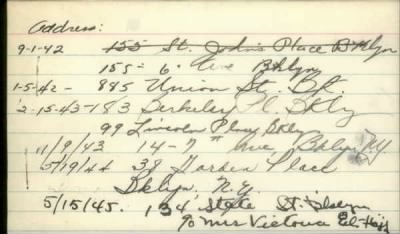 Address:
9-1-42 155 St. John's Place Bklyn
155- 6- Ave Bklyn
1-5-42- 885 Union St. Bk.
2-15-43-183 Berkeley Pl. Bkly
99 Lincoln Place, Bkly
11/9/43 14-7th Ave, Bklyn NY
5/19/44 38 Garden Place
Bklyn. N.Y.
5/15/45. 134 State St. Bklyn
℅ Mrs Victoria